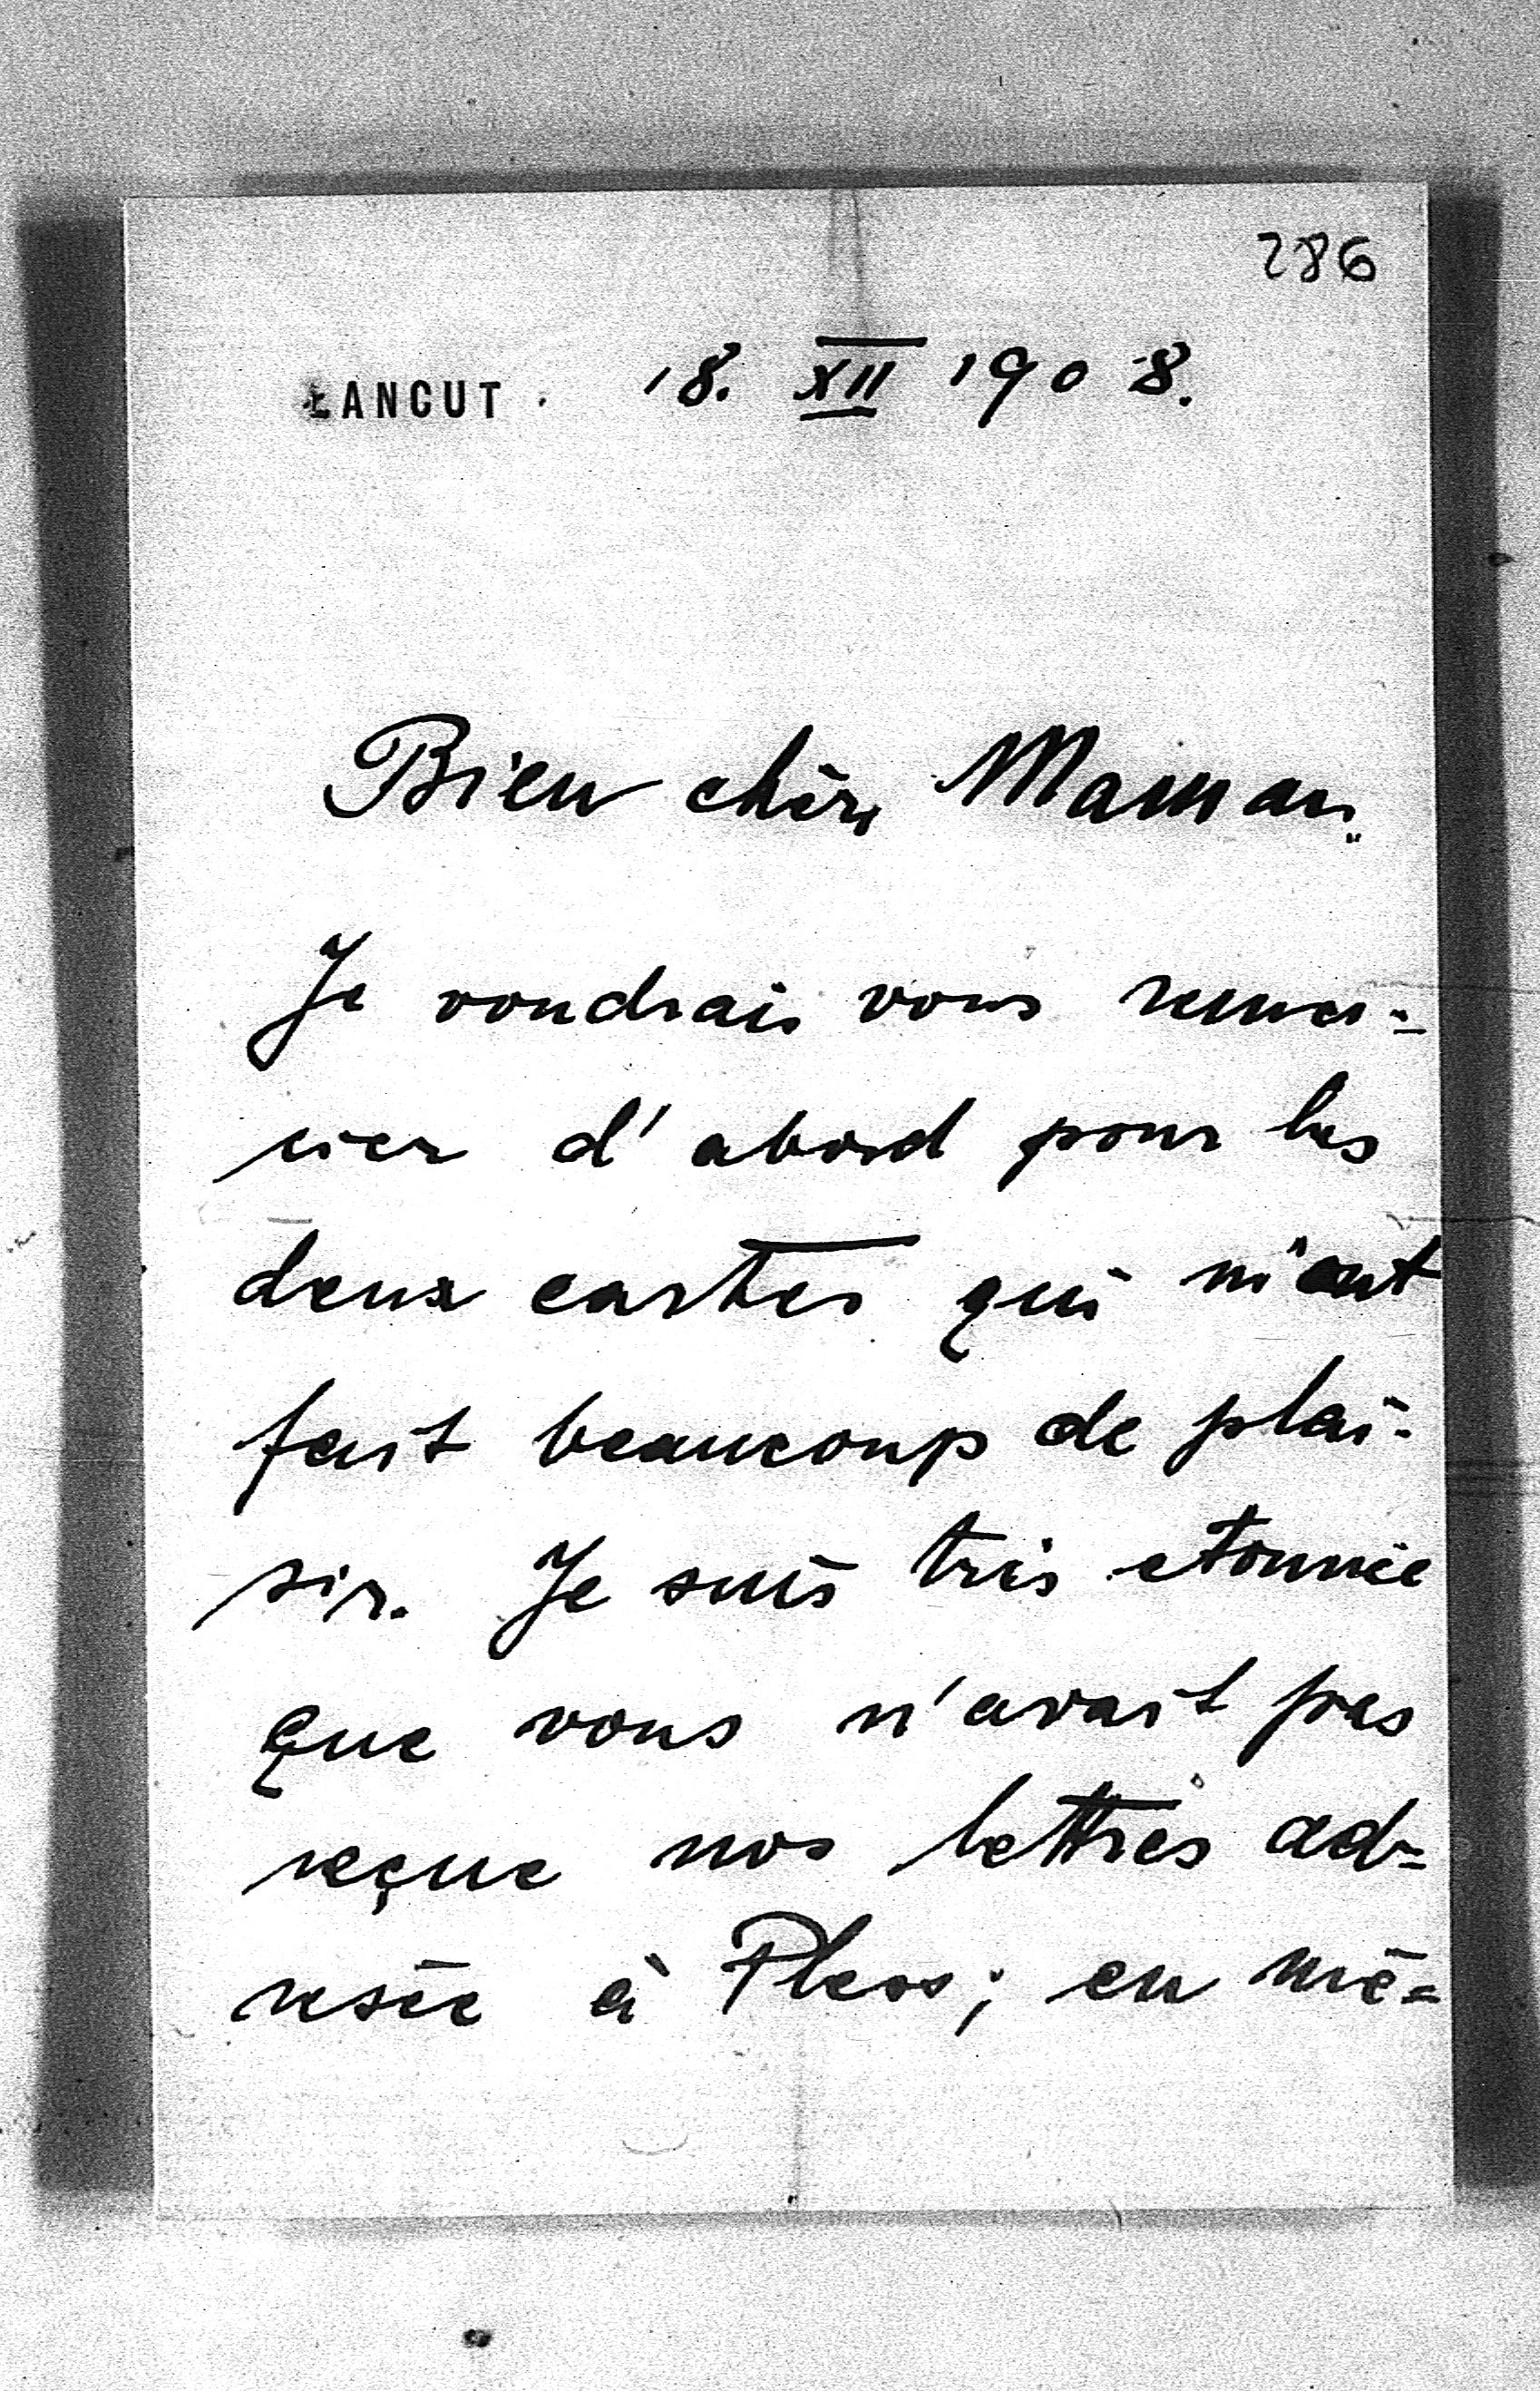 286
ŁANCUT. 18. XII 1908.
Bien chère Maman.
Je voudrais vous remer-
cier d'abord pour les
deux cartes qui m'ont
fait beaucoup de plai-
sir. Je suis très etonnée
que vous n'avait pas
reçue nos lettres ad-
resée à Pless; en mê-